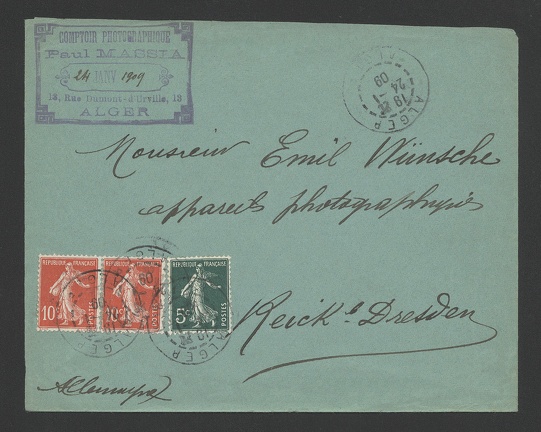 COMPTOIR PHOTOGRAPHIQUE
Paul MASSIA
24 JANV 1909
18, Rue Dumont-d'Urville, 18
ALGER
ALGER
18
24 -1
09
Monsieur Emil Wünsche
appareils photographiques
REPUBLIQUE FRANÇAISE
10
POSTES
REPUBLIQUE FRANÇAISE
POSTES
REPUBLIQUE FRANÇAISE
5c
POSTES
ALGER
09
Reick b Dresden
Allemagne